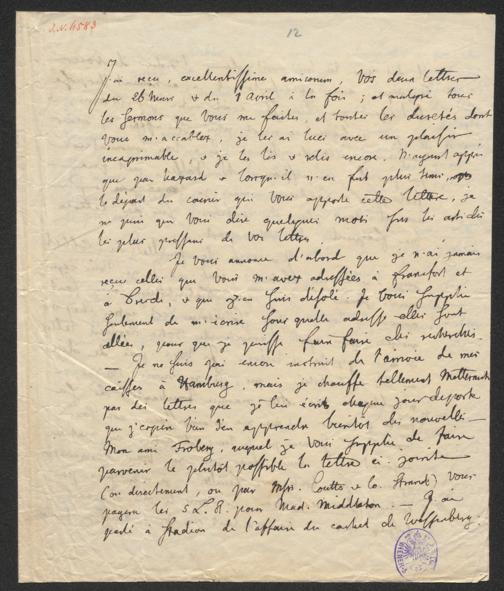 J.N. 4583
12
J'ai reçu, excellentissime amicorum, Vos deux lettres
du 26 Mars & du 1 Avril à la fois; et malgré tous
les sermons que Vous me faites, et toutes les duretés dont
Vous m'accablez, je les ai lues avec un plaisir
inexprimable, & je les lis & relis encore. N'ayant appris
que par hazard & lorsqu'il n'en fut plus tems,
le départ du courier qui Vous apporte cette lettre, je
ne puis que Vous dire quelques mots sur les articles
les plus pressans de Vos lettres.
Je Vous annonce d'abord que je n'ai jamais
reçu celles que Vous m'avez adressées à Francfort et
à, & que j'en suis désolé. Je Vous supplie
seulement de m'écrire sous quelle adresse elles sont
allées, pour que je puisse faire des recherches.
— Je ne suis pas encore instruit de l'arrivée de mes
caisses à Hamburg, mais je chauffe tellement
par des lettres que je lui écris chaque jour de poste
que j'espère bien d'en apprendre bientôt des nouvelles —
Mon ami Froberg, auquel je Vous supplie de faire
parvenir le plutôt possible la lettre ci-jointe
(ou directement, ou par Mssrs. Coutts & Co. Strand) Vous
payera les 5 L. St. pour Mad. Middleton. — J'ai
parlé à Stadion de l'affaire du cachet de Wessenberg.